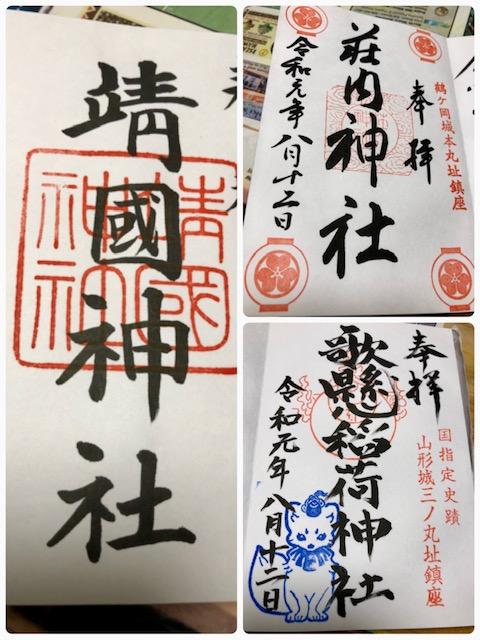 靖國神社
靖國
神社
奉拝
鶴ヶ岡城本丸址鎮座
荘内神社
令和元年八月十二日
奉拝
国指定史蹟
山形城三ノ丸址鎮座
歌懸稲荷神社
令和元年八月十二日